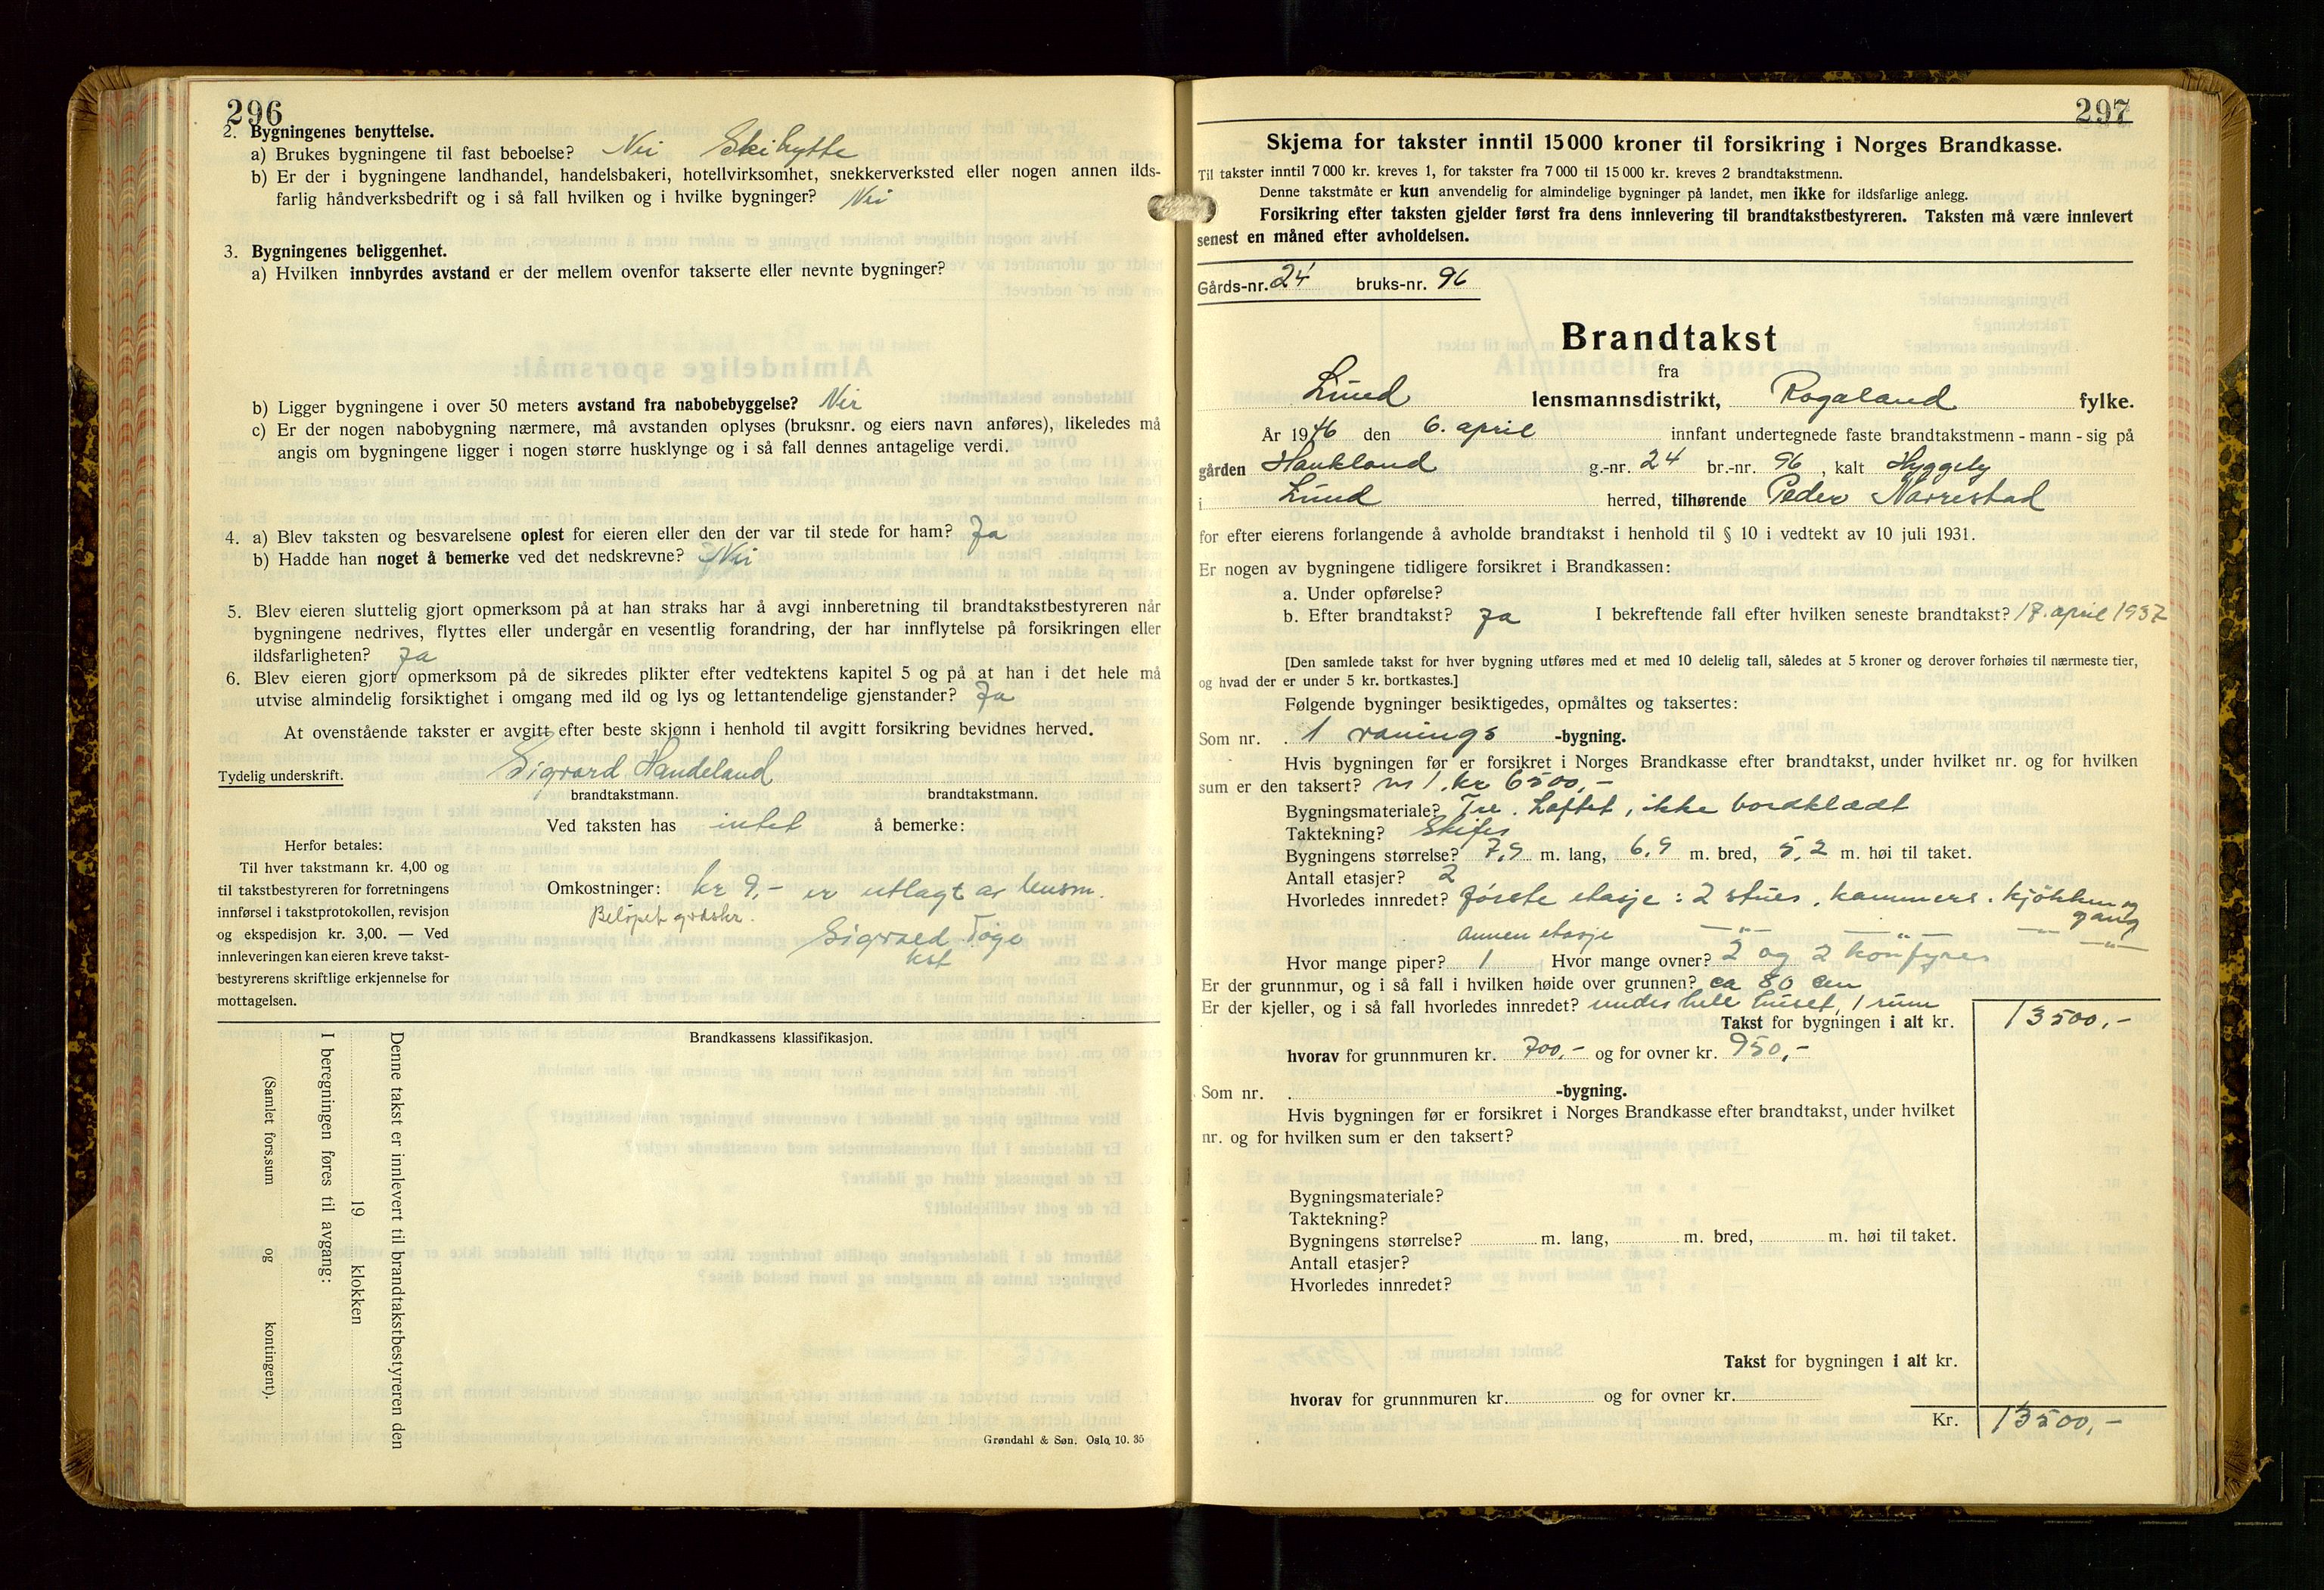 296
2. Bygningenes benyttelse.
a) Brukes bygningene til fast beboelse? Nei Skihytte
b) Er der i bygningene landhandel, handelsbakeri, hotellvirksomhet, snekkerverksted eller nogen annen ilds-
farlig håndverksbedrift og i så fall hvilken og i hvilke bygninger? Nei
3. Bygningenes beliggenhet.
a) Hvilken innbyrdes avstand er der mellem ovenfor takserte eller nevnte bygninger?
b) Ligger bygningene i over 50 meters avstand fra nabobebyggelse? Nei
c) Er der nogen nabobygning nærmere, må avstanden oplyses (bruksnr. og eiers navn anføres), likeledes må
angis om bygningene ligger i nogen større husklynge og i så fall dennes antagelige verdi.
4. a) Blev taksten og besvarelsene oplest for eieren eller den der var til stede for ham? Ja
b) Hadde han noget å bemerke ved det nedskrevne? Nei
5. Blev eieren sluttelig gjort opmerksom på at han straks har å avgi innberetning til brandtakstbestyreren når
bygningene nedrives, flyttes eller undergår en vesentlig forandring, der har innflytelse på forsikringen eller
ildsfarligheten? Ja
6. Blev eieren gjort opmerksom på de sikredes plikter efter vedtektens kapitel 5 og på at han i det hele må
utvise almindelig forsiktighet i omgang med ild og lys og lettantendelige gjenstander? Ja
At ovenstående takster er avgitt efter beste skjønn i henhold til avgitt forsikring bevidnes herved.
Tydelig underskrift. Sigvard Handeland
brandtakstmann. brandtakstmann.
Ved taksten has intet å bemerke:
Herfor betales:
Til hver takstmann kr. 4,00 og
til takstbestyreren for forretningens
innførsel i takstprotokollen, revisjon
og ekspedisjon kr. 3,00. — Ved
innleveringen kan eieren kreve takst-
bestyrerens skriftlige erkjennelse for
mottagelsen.
Omkostninger: kr 9,- er utlagt av lensm.
Beløpet
kst
Brandkassens klassifikasjon.
Denne takst er innlevert til brandtakstbestyreren den
19 klokken
I beregningen føres til avgang:
(Samlet fors.sum og kontingent).
Grøndahl & Søn. Oslo. 10. 35
297
Skjema for takster inntil 15 000 kroner til forsikring i Norges Brandkasse.
Til takster inntil 7 000 kr. kreves 1, for takster fra 7 000 til 15 000 kr. kreves 2 brandtakstmenn.
Denne takstmåte er kun anvendelig for almindelige bygninger på landet, men ikke for ildsfarlige anlegg.
Forsikring efter taksten gjelder først fra dens innlevering til brandtakstbestyreren. Taksten må være innlevert
senest en måned efter avholdelsen.
Gårds-nr. 24 bruks-nr. 96
Brandtakst
fra
Lund lensmannsdistrikt, Rogaland fylke.
År 1946 den 6. april innfant undertegnede faste brandtakstmenn - mann - sig på
gården Haukland g.-nr. 24 br.-nr. 96, kalt Hyggely
i Lund herred, tilhørende Peder Nårrestad
for efter eierens forlangende å avholde brandtakst i henhold til § 10 i vedtekt av 10 juli 1931.
Er nogen av bygningene tidligere forsikret i Brandkassen:
a. Under opførelse?
b. Efter brandtakst? Ja I bekreftende fall efter hvilken seneste brandtakst? 17. april 1937
[Den samlede takst for hver bygning utføres med et med 10 delelig tall, således at 5 kroner og derover forhøies til nærmeste tier,
og hvad der er under 5 kr. bortkastes.]
Følgende bygninger besiktigedes, opmåltes og taksertes:
Som nr. 1 vånings -bygning.
Hvis bygningen før er forsikret i Norges Brandkasse efter brandtakst, under hvilket nr. og for hvilken
sum er den taksert? nr 1. kr 6500,-
Bygningsmateriale? Tre. Laftet, ikke bordklædt
Taktekning? Skifer
Bygningens størrelse? 7,9 m. lang, 6,9 m. bred, 5,2 m. høi til taket.
Antall etasjer? 2
Hvorledes innredet? første etasje: 2 stuer, kammers. kjökken og
gang
annen etasje —"— —"— —"— —"—
Hvor mange piper? 1 Hvor mange ovner? 2 og 2 komfyrer
Er der grunnmur, og i så fall i hvilken høide over grunnen? ca 80 cm
Er der kjeller, og i så fall hvorledes innredet? under hele huset, 1 rum
Takst for bygningen i alt kr. 13500,-
hvorav for grunnmuren kr. 700,- og for ovner kr. 950,-
Som nr. -bygning.
Hvis bygningen før er forsikret i Norges Brandkasse efter brandtakst, under hvilket
nr. og for hvilken sum er den taksert?
Bygningsmateriale?
Taktekning?
Bygningens størrelse? m. lang, m. bred, m. høi til taket.
Antall etasjer?
Hvorledes innredet?
Takst for bygningen i alt kr.
hvorav for grunnmuren kr. og for ovner kr.
Kr. 13500,-